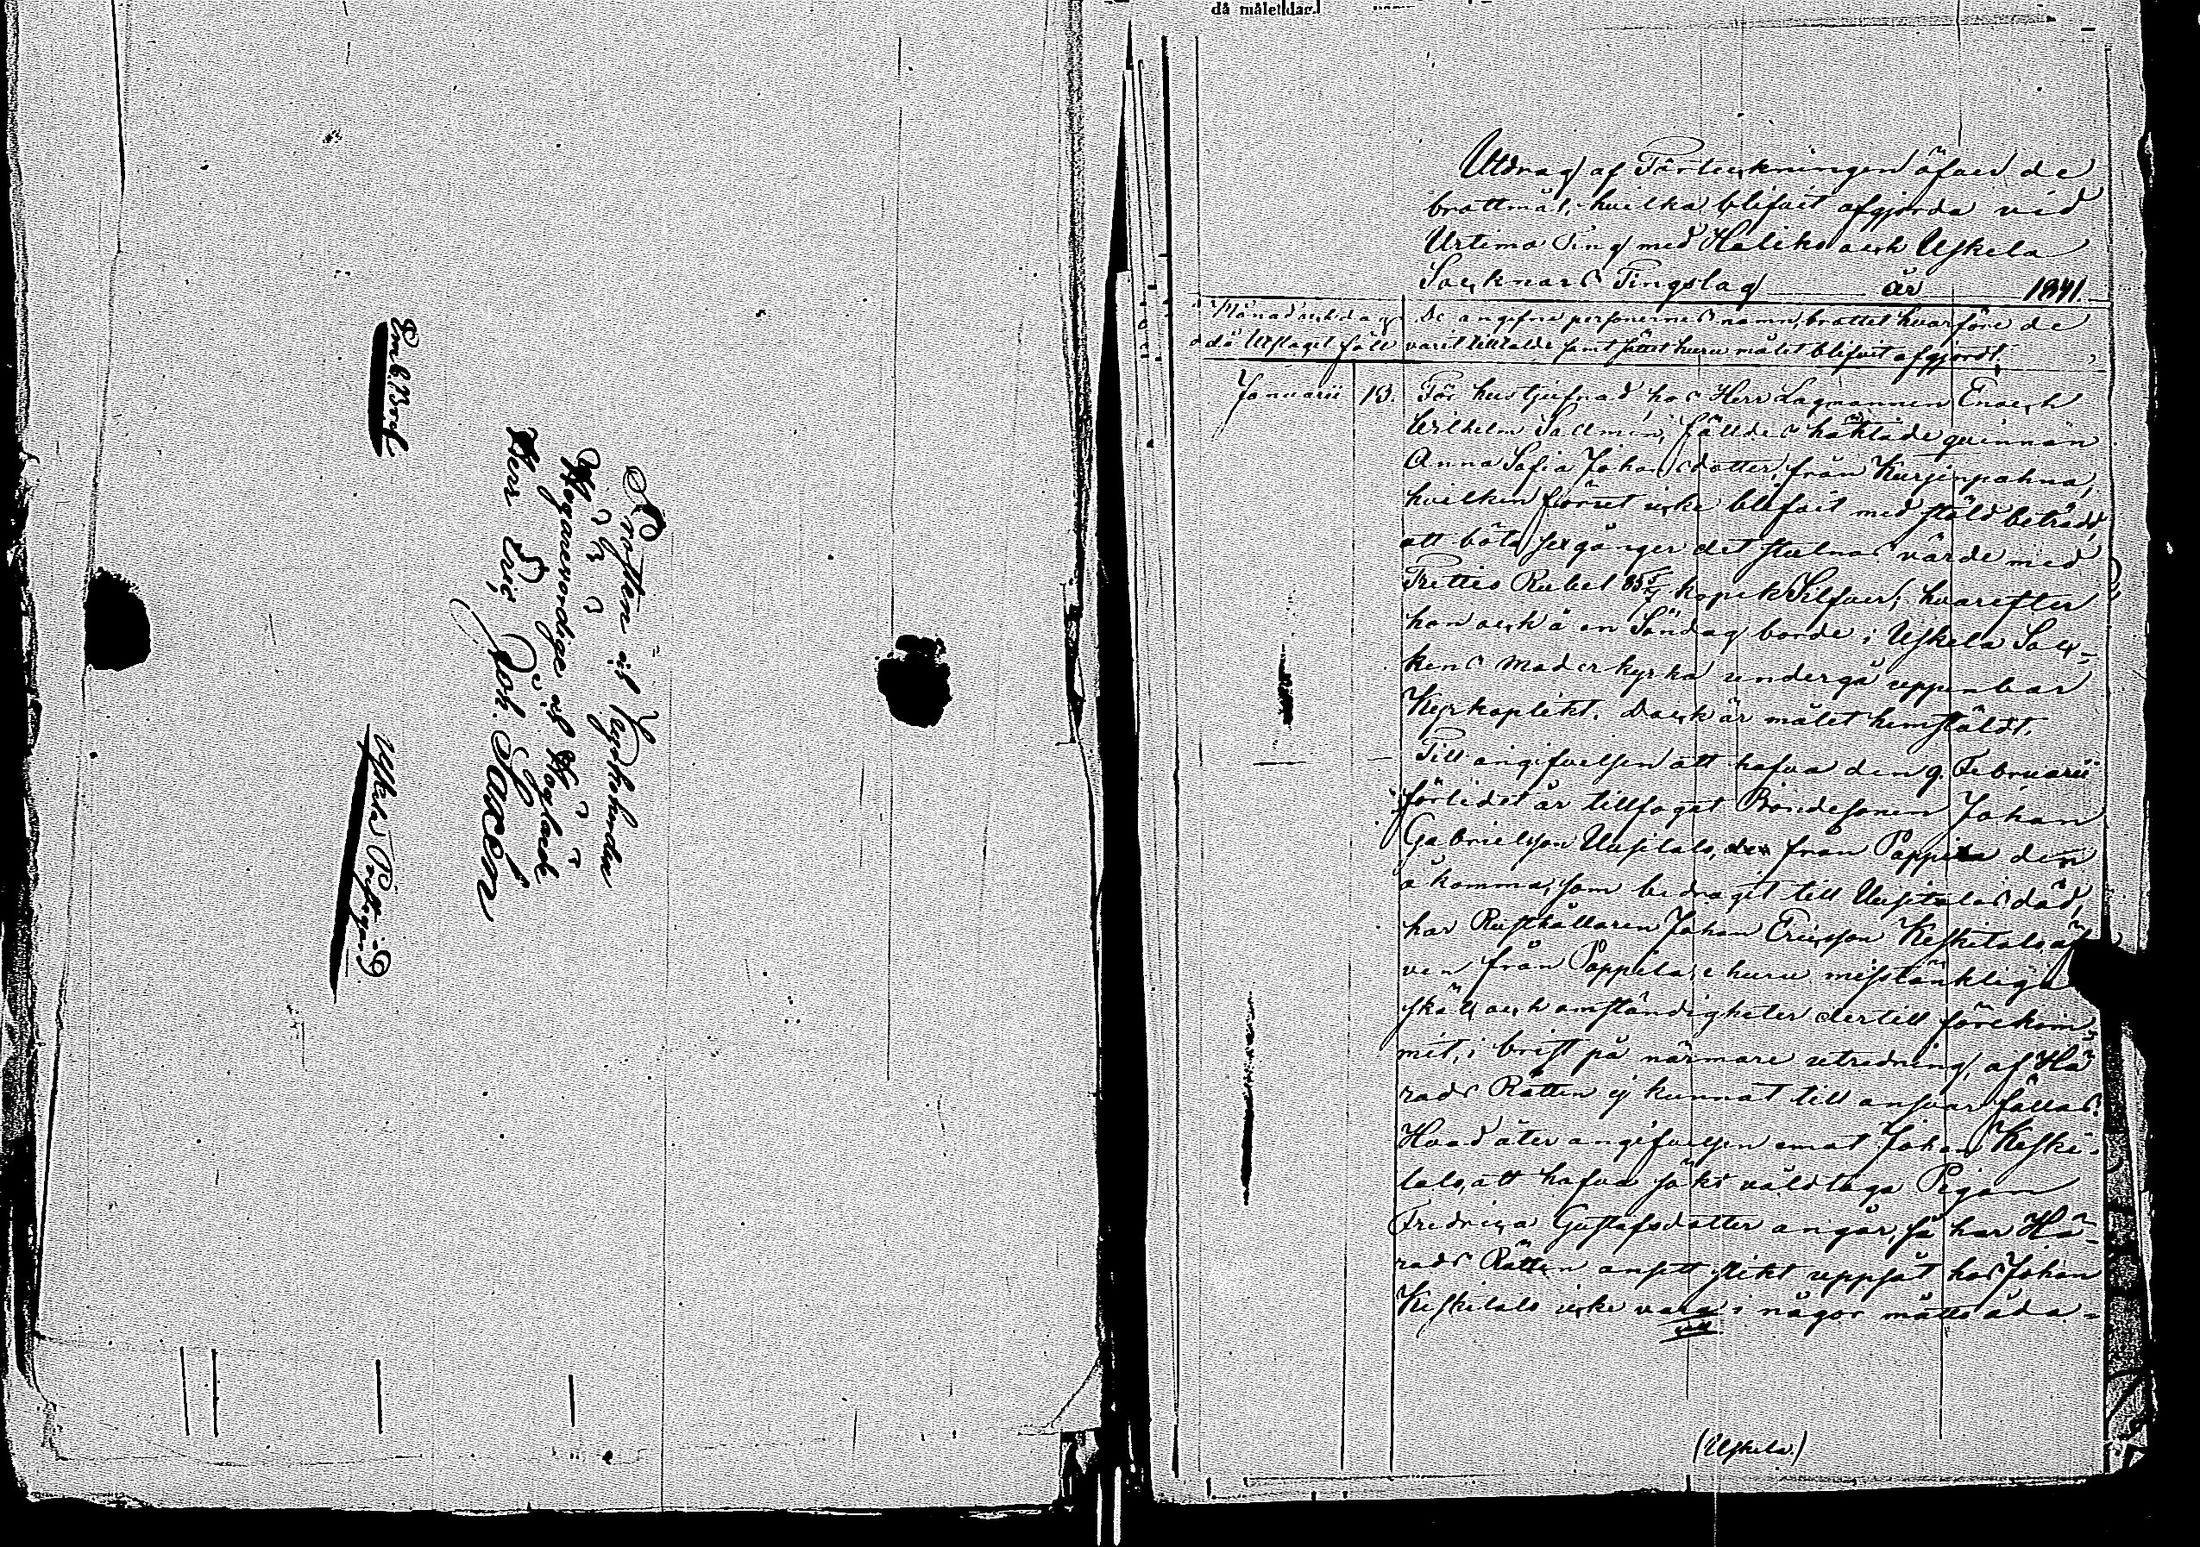 Emb. Bref
Uskela Postkont.
Prosten och Kyrkoherden
Högärevördige och Höglärde
Herr Joh. Savén
då målet dag.
Utdrag af Förteckningen öfver de
brottmål, hvilka blifvit afgjorda vid
Urtima Ting med Haliko och Uskela
Socknars Tingslag år 1841.
Månad och dag
då Utslaget fäll
De angifne personernes namn, brottet hvarföre de
varit tilltalde samt sättet huru målet blifvit afgjordt.
Januarii 13. För hustjufnad hos Herr Lagmannen Enoch
Wilhelm Sallmén, fälldes häktade qvinnan
Anna Sofia Johansdotter, från Kurjenpahna,
hvilken förut icke blifvit med stöld beträdd
att böta sexgånger det stulnas värde med
Trettio Rubel 85 5/7 kopek Silfver; hvarefter
hon ock å en Söndag borde i Uskela Soc-
kens Moderkyrka undergå uppenbar
Kyrkoplikt. Dock är målet hemstäldt.
Till angifvelsen att hafva den 9. Februarii
förlidet år tillfogat Bondesonen Johan
Gabrielsson Uusitalo, från Pappila den
åkomma, som bedragit till Uusitalos död,
har Rusthållaren Johan Ericsson Keskitalo, äf
ven från Pappila, ehuru misstänklige
skäl och omständigheter dertill förekom-
mit, i brist på närmare utredning, af Hä
rads Rätten ej kunnat till ansvar fällas.
Hvad åter angifvelsen emot Johan Keski-
talo, att hafva sökt våldtaga Pigan
Fredrica Gustafsdotter angår, så har Hä-
rads Rätten ansett slikt uppsåt hos Johan
Keskitalo icke vara i någor måtto åda-
(Uskela.)